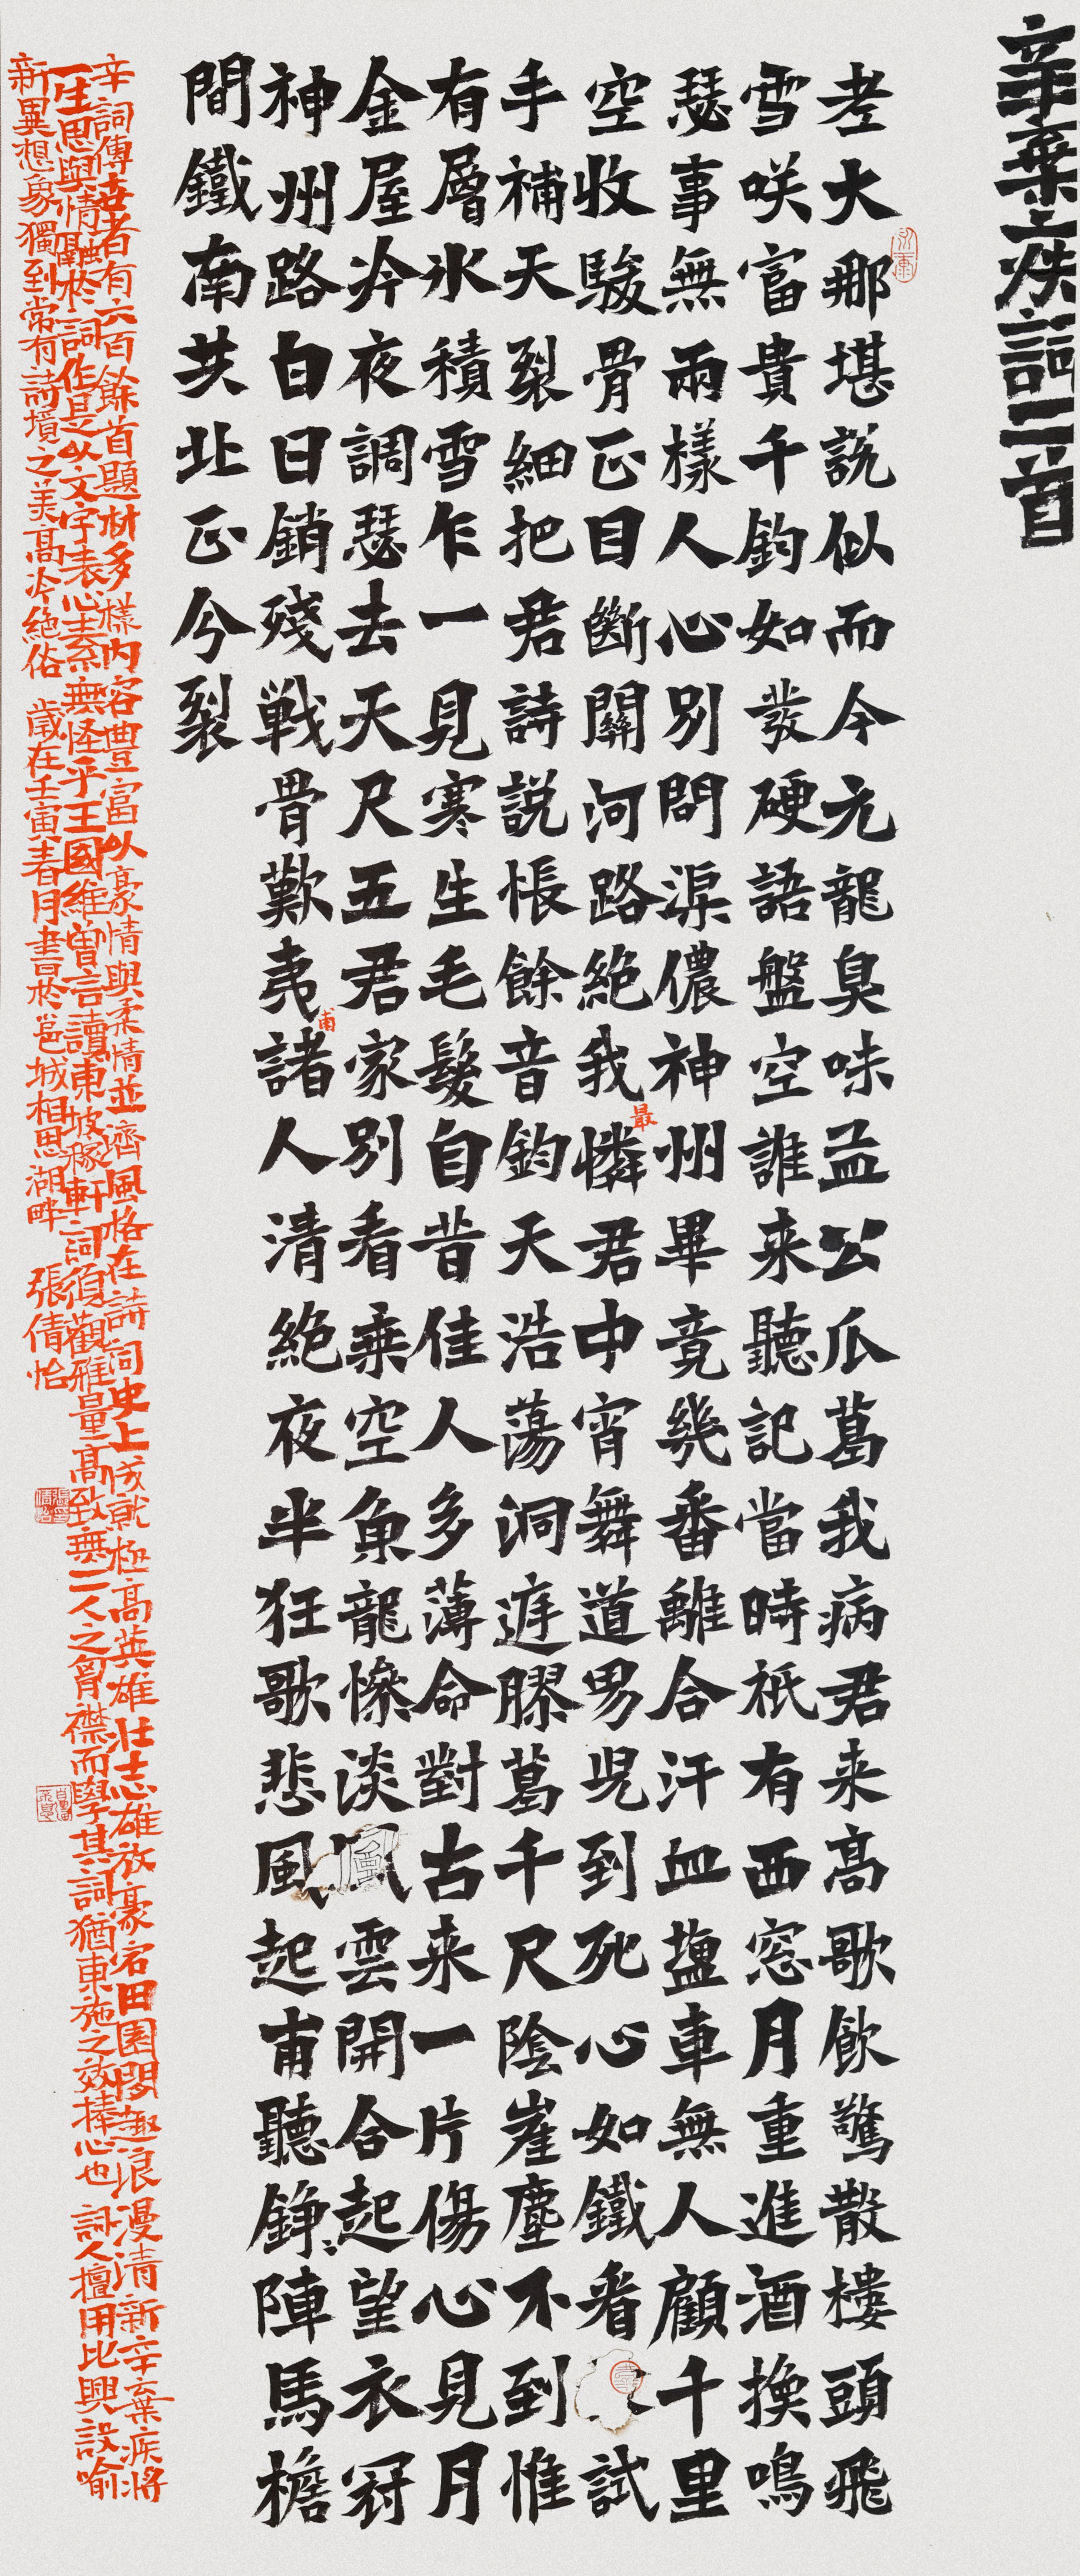 辛棄疾詞二首
老大那堪說似而今元龍臭味孟公瓜葛我病君来高歌飲驚散樓頭飛
雪咲富貴千鈞如髮硬語盤空誰来聽記當時祇有西窓月重進酒換鳴
瑟事無兩樣人心別問渠儂神州畢竟幾番離合汗血鹽車無人顧千里
空收駿骨正目斷關河路絕我最憐君中宵舞道男児到死心如鐵看試
手補天裂細把君詩說悵餘音鈞天浩蕩洞庭膠葛千尺陰崖塵不到惟
有層氷積雪乍一見寒生毛髮自昔佳人多薄命對古来一片傷心見月
金屋冷夜調瑟去天尺五君家別看乗空魚龍慘淡風雲開合起望衣冠
神州路白日銷殘戦骨歎夷甫諸人清絕夜半狂歌悲風起甫聽錚〻陣馬檐
間鐵南共北正分裂
辛詞傳古者有六百餘首題材多樣内容豊富以豪情與柔情並濟風格在詩詞史上成就極高英雄壯志雄放豪宕田園閑趣浪漫清新辛棄疾將
一生思與情融於詞作是以文字表心素無怪乎王國維曾言讀東坡稼軒詞須觀雅量高致無二人之胷襟而學其詞猶東施之效捧心也 詞人擅用比興設喻
新異想象獨到常有詩境之美高冷絕俗 歲在壬寅春月書於邕城相思湖畔 張倩怡